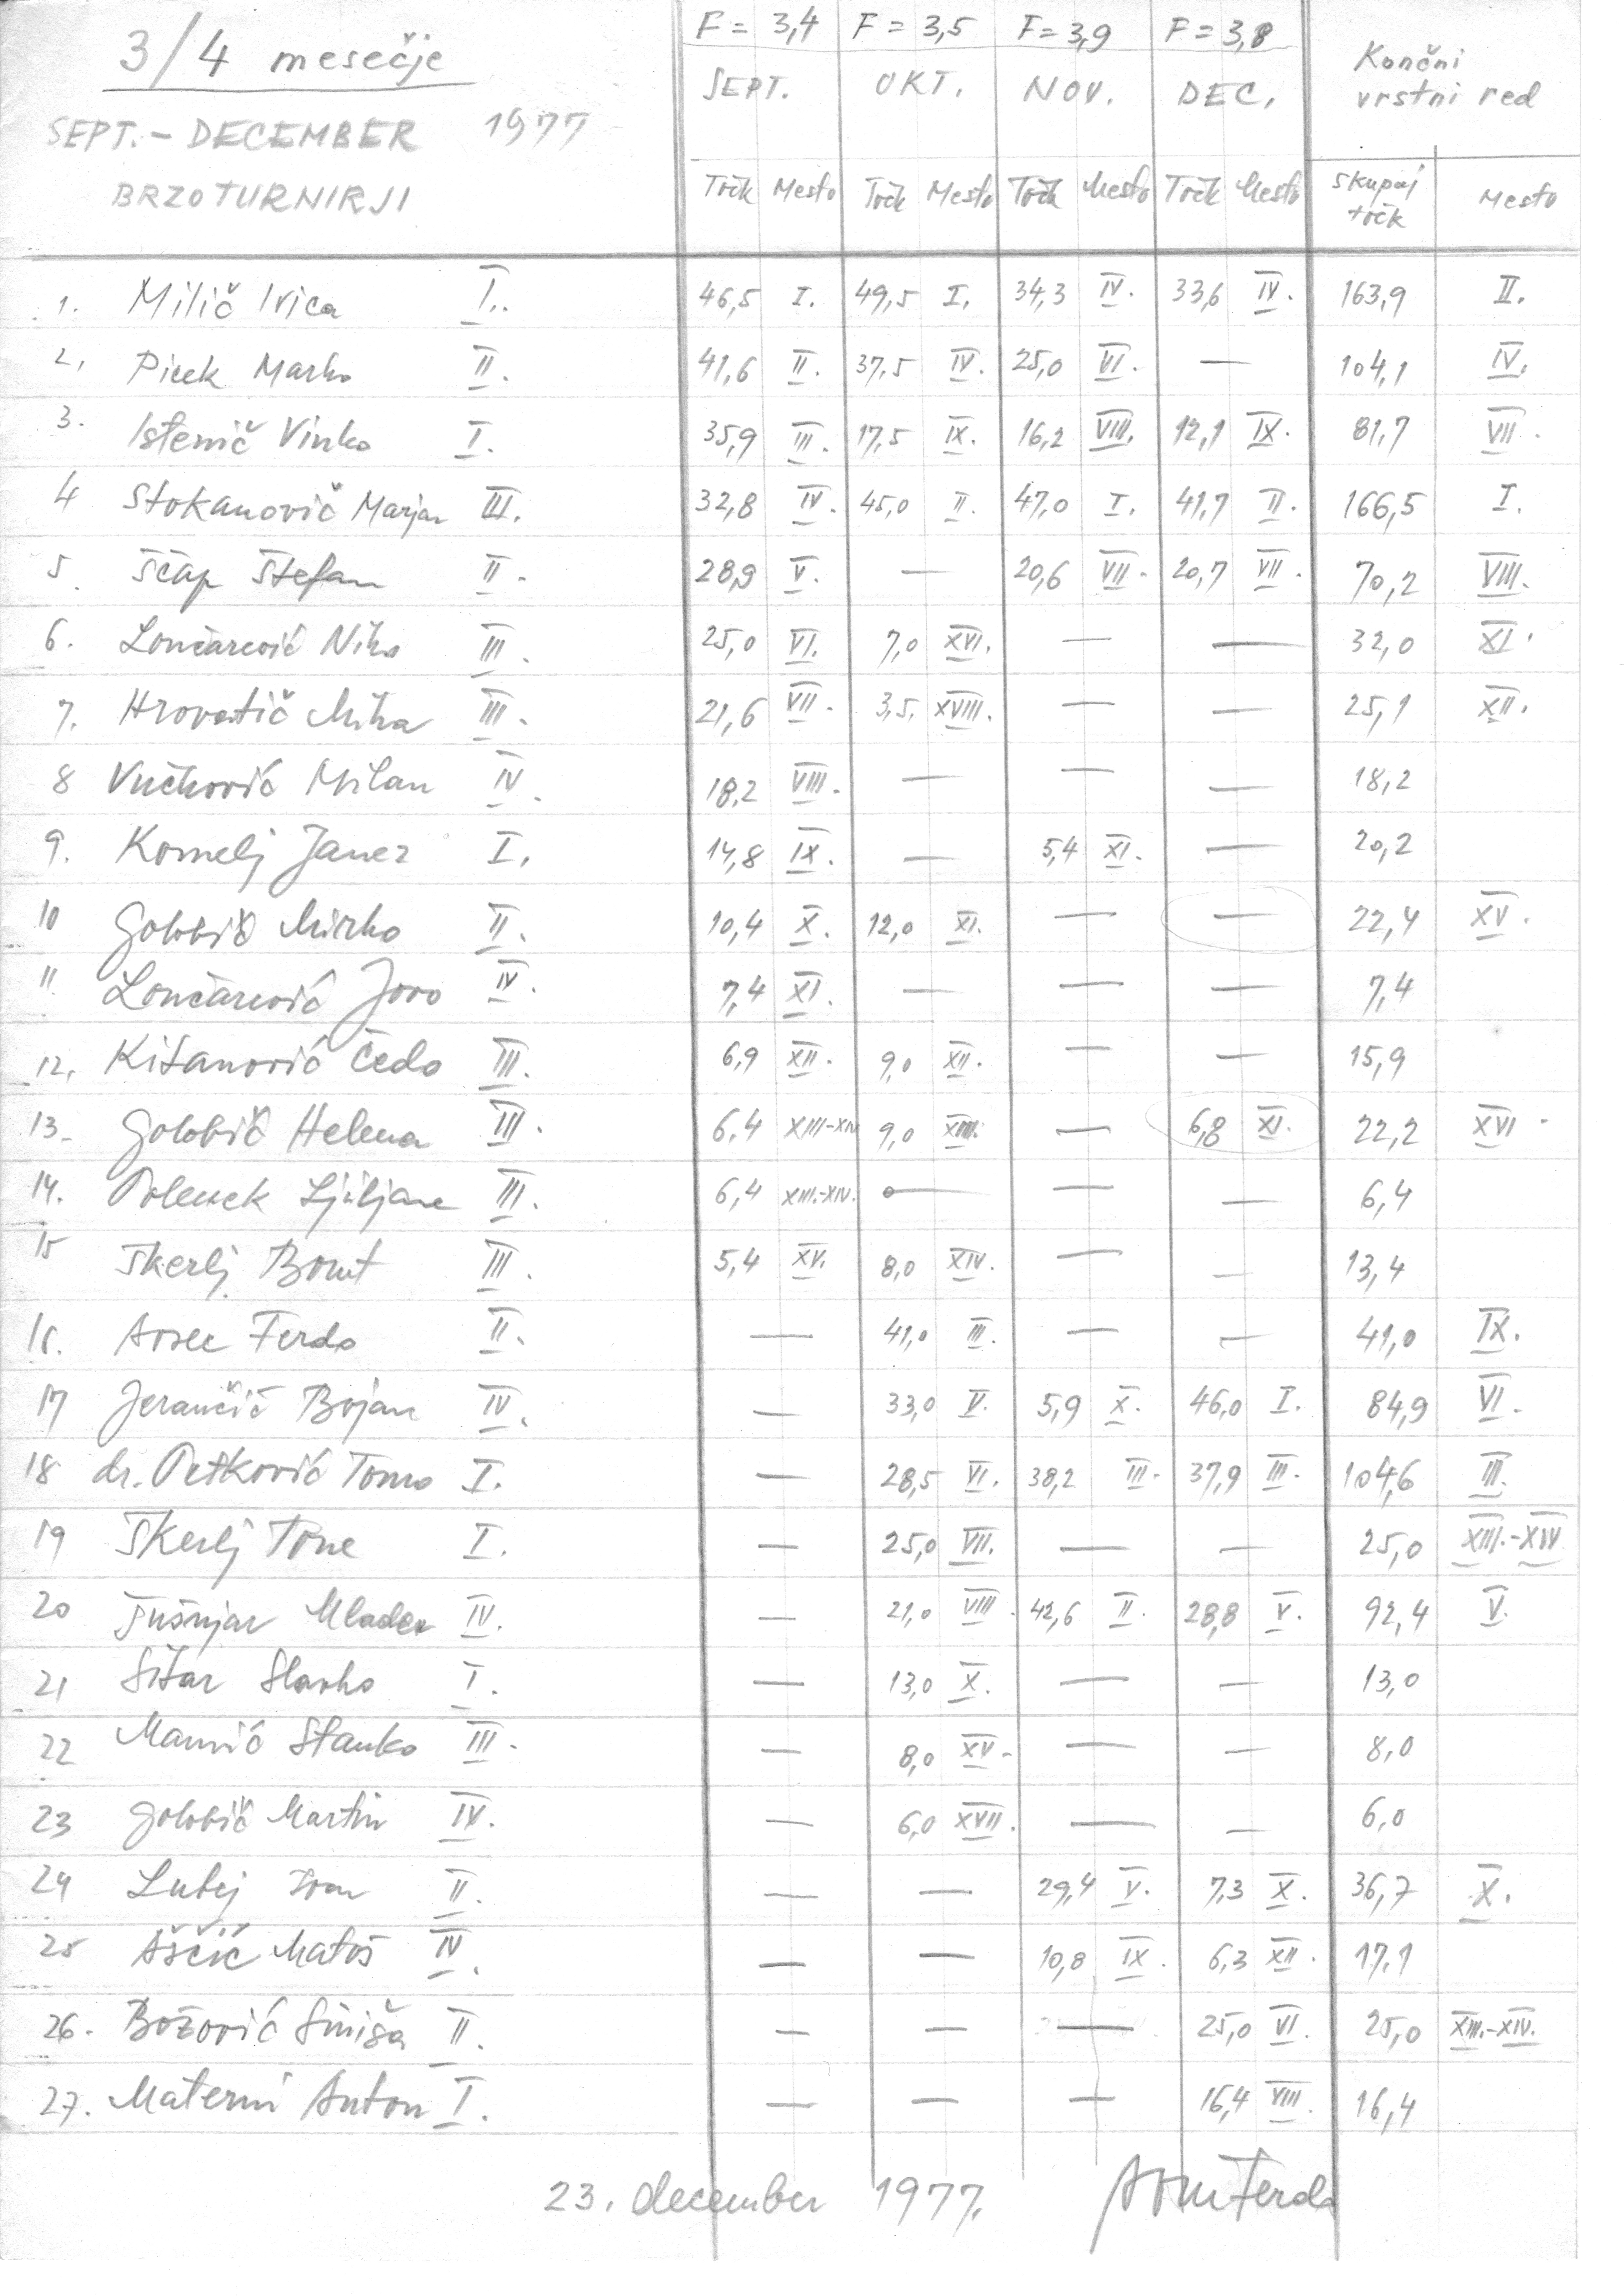 3/4 mesečje
SEPT. - DECEMBER 1977
BRZOTURNIRJI
F = 3,4 F = 3,5 F = 3,9 F = 3,8
SEPT. OKT. NOV. DEC. Končni vrstni red
Točk Mesto Točk Mesto Točk Mesto Točk Mesto skupaj točk Mesto
1. Milič Ivica I. 46,5 I. 49,5 I. 34,3 IV. 33,6 IV. 163,9 II.
2. Picek Marko II. 41,6 II. 37,5 IV. 25,0 VI. — 104,1 IV.
3. Istenič Vinko I. 35,9 III. 17,5 IX. 16,2 VIII. 12,1 IX. 81,7 VII.
4 Stokanovič Marjan III. 32,8 IV. 45,0 II. 47,0 I. 41,7 II. 166,5 I.
5. Ščap Štefan II. 28,9 V. — 20,6 VII. 20,7 VII. 70,2 VIII.
6. Lončarević Niko III. 25,0 VI. 7,0 XVI. — — 32,0 XI.
7. Hrovatič Miha III. 21,6 VII. 3,5. XVIII. — — 25,1 XII.
8 Vučković Milan IV. 18,2 VIII. — — — 18,2
9. Komelj Janez I. 14,8 IX. — 5,4 XI. — 20,2
10 Golobič Mirko II. 10,4 X. 12,0 XI. — — 22,4 XV.
11 Lončarević Jovo IV. 7,4 XI. — — — 7,4
12. Kitanović Čedo III. 6,9 XII. 9,0 XII. — — 15,9
13. Golobič Helena III. 6,4 XIII-XIV 9,0 XIII. — 6,8 XI. 22,2 XVI.
14. Ljiljane III. 6,4 XIII.-XIV. — — — 6,4
15 Škerlj Borut III. 5,4 XV. 8,0 XIV. — — 13,4
16. Ferdo II. — 41,0 III. — — 41,0 IX.
17 Jerančič Bojan IV. — 33,0 V. 5,9 X. 46,0 I. 84,9 VI.
18 dr. Petković Tomo I. — 28,5 VI. 38,2 III. 37,9 III. 104,6 III.
19 Škerlj Tone I. — 25,0 VII. — — 25,0 XIII.-XIV
20 Mladen IV. — 21,0 VIII. 42,6 II. 28,8 V. 92,4 V.
21 Sitar Slavko I. — 13,0 X. — — 13,0
22 Stanko III. — 8,0 XV. — — 8,0
23 Golobič Martin IV. — 6,0 XVII. — — 6,0
24 Lubej Ivan II. — — 29,4 V. 7,3 X. 36,7 X.
25 Aščić Matoš IV. — — 10,8 IX. 6,3 XII. 17,1
26. Božović Siniša II. — — — 25,0 VI. 25,0 XIII.-XIV.
27. Materni Anton I. — — — 16,4 VIII. 16,4
23. december 1977. Ferdo